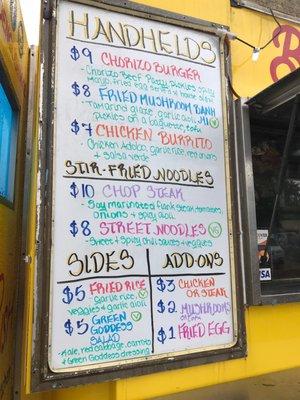 HANDHELDS
$9 CHORIZO BURGER
Chorizo Beef Patty, pickles, spicy
Mayo, fried egg
$8 FRIED MUSHROOM BANH MI
Tamarind glaze, garlic aioli,
pickles on a baguette, tofu
$7 CHICKEN BURRITO
Chicken Adobo, garlic rice, red onions
+ Salsa verde
STIR-FRIED NOODLES
$10 CHOP STEAK
Soy marinated flank steak, tomatoes,
Onions + Spicy aioli
$8 STREET NOODLES VG
Sweet + Spicy chili sauces + veggies
SIDES
$5 FRIED RICE
Garlic rice,
veggies + garlic aioli
$5 GREEN
GODDESS
SALAD
Kale, red cabbage, carrots
+ Green Goddess dressing
ADD-ONS
$3 CHICKEN
OR STEAK
$2 MUSHROOMS
$1 FRIED EGG
VISA
B